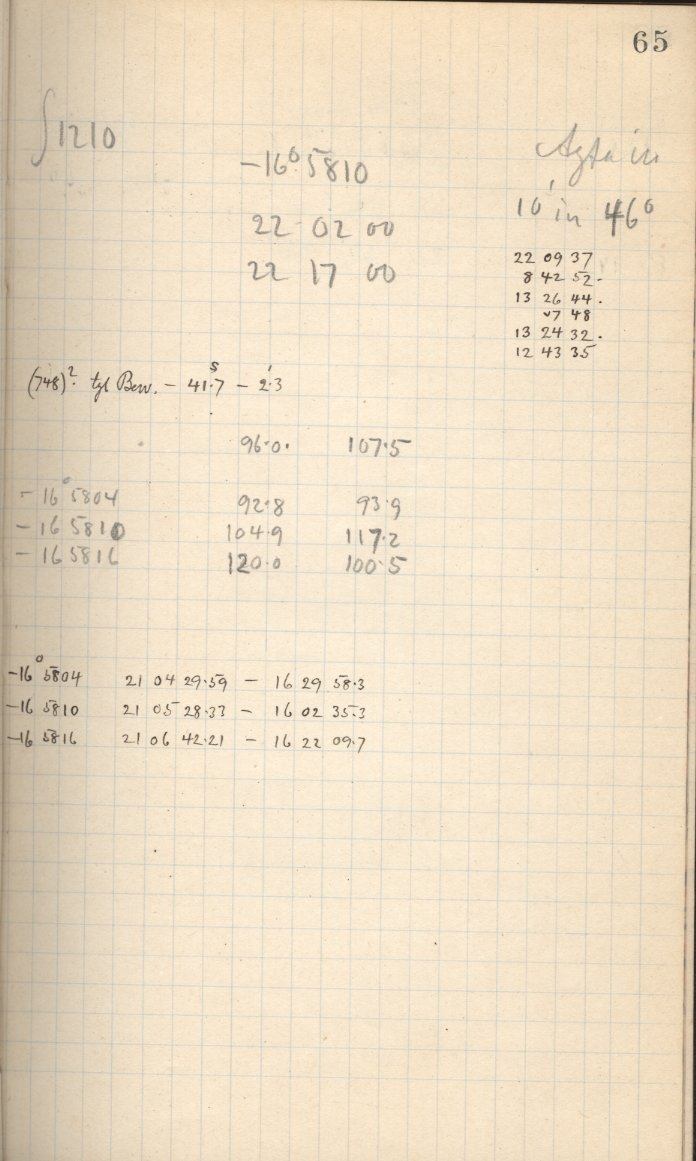 65
∫1210
-16° 5810
22 02 00
22 17 00
in
10' in 46°
22 09 37
8 42 52.
13 26 44.
7 48
13 24 32.
12 43 35
(748)². tgl Bew. - 41.7ˢ - 2.3'
96.0. 107.5
-16° 5804 92.8 93.9
-16 5810 104.9 117.2
-16 5816 120.0 100.5
-16° 5804 21 04 29.59 - 16 29 58.3
-16 5810 21 05 28.33 - 16 02 35.3
-16 5816 21 06 42.21 - 16 22 09.7